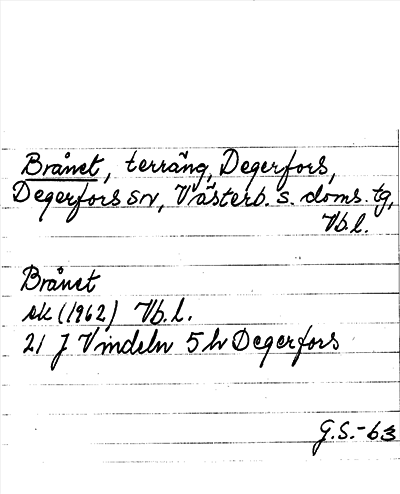 Brånet, terräng, Degerfors,
Degerfors sn, Västerb. s. doms. tg,
Vb.l.
Brånet
ek (1962) Vb.l.
21 J Vindeln 5 h Degerfors
G.S.-63